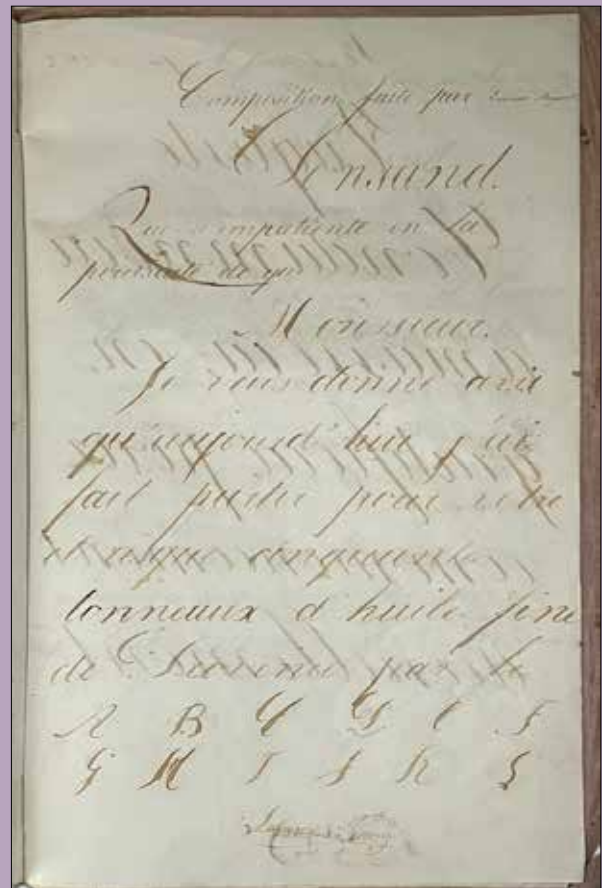 Composition faite par
Consand.
Qui s'impatiente en la
poursuite de
Monsieur.
Je vous donne avis
qu'aujourd'hui j'ai
fait partir pour votre
cinquante
tonneaux d'huile fine
de Provence par le
A B C D E F
G H I J K L